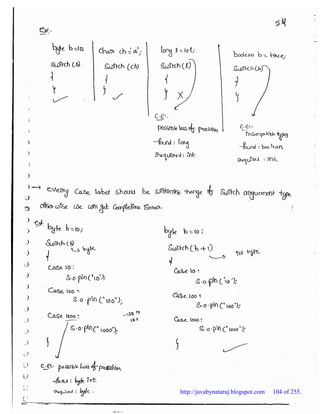 54
Ex:-
byte b=10;
Switch (b)
{
}
char ch='a';
Switch (ch)
{
}
long l=10l;
Switch (l)
{
} X
boolean b=true;
Switch(b)
{
}
C.E:-
possible loss of precision
found : long
required : int
C.E:-
InCompatible types
found : boolean
required : int
→ every Case label should be within the range of Switch argument type
otherwise we will get Compiletime Error.
Ex:
byte b=10;
Switch(b)
{ byte
Case 10 :
S.o.pln("10");
Case 100 :
S.o.pln("100");
Case 1000 :
S.o.pln("1000");
}
byte b=10;
Switch(b+1)
{ int type
Case 10 :
S.o.pln("10");
Case 100 :
S.o.pln("100");
Case 1000 :
S.o.pln("1000");
}
C.E:- possible loss of precision
found : int
required : byte.
http://javabynataraj.blogspot.com 104 of 255.